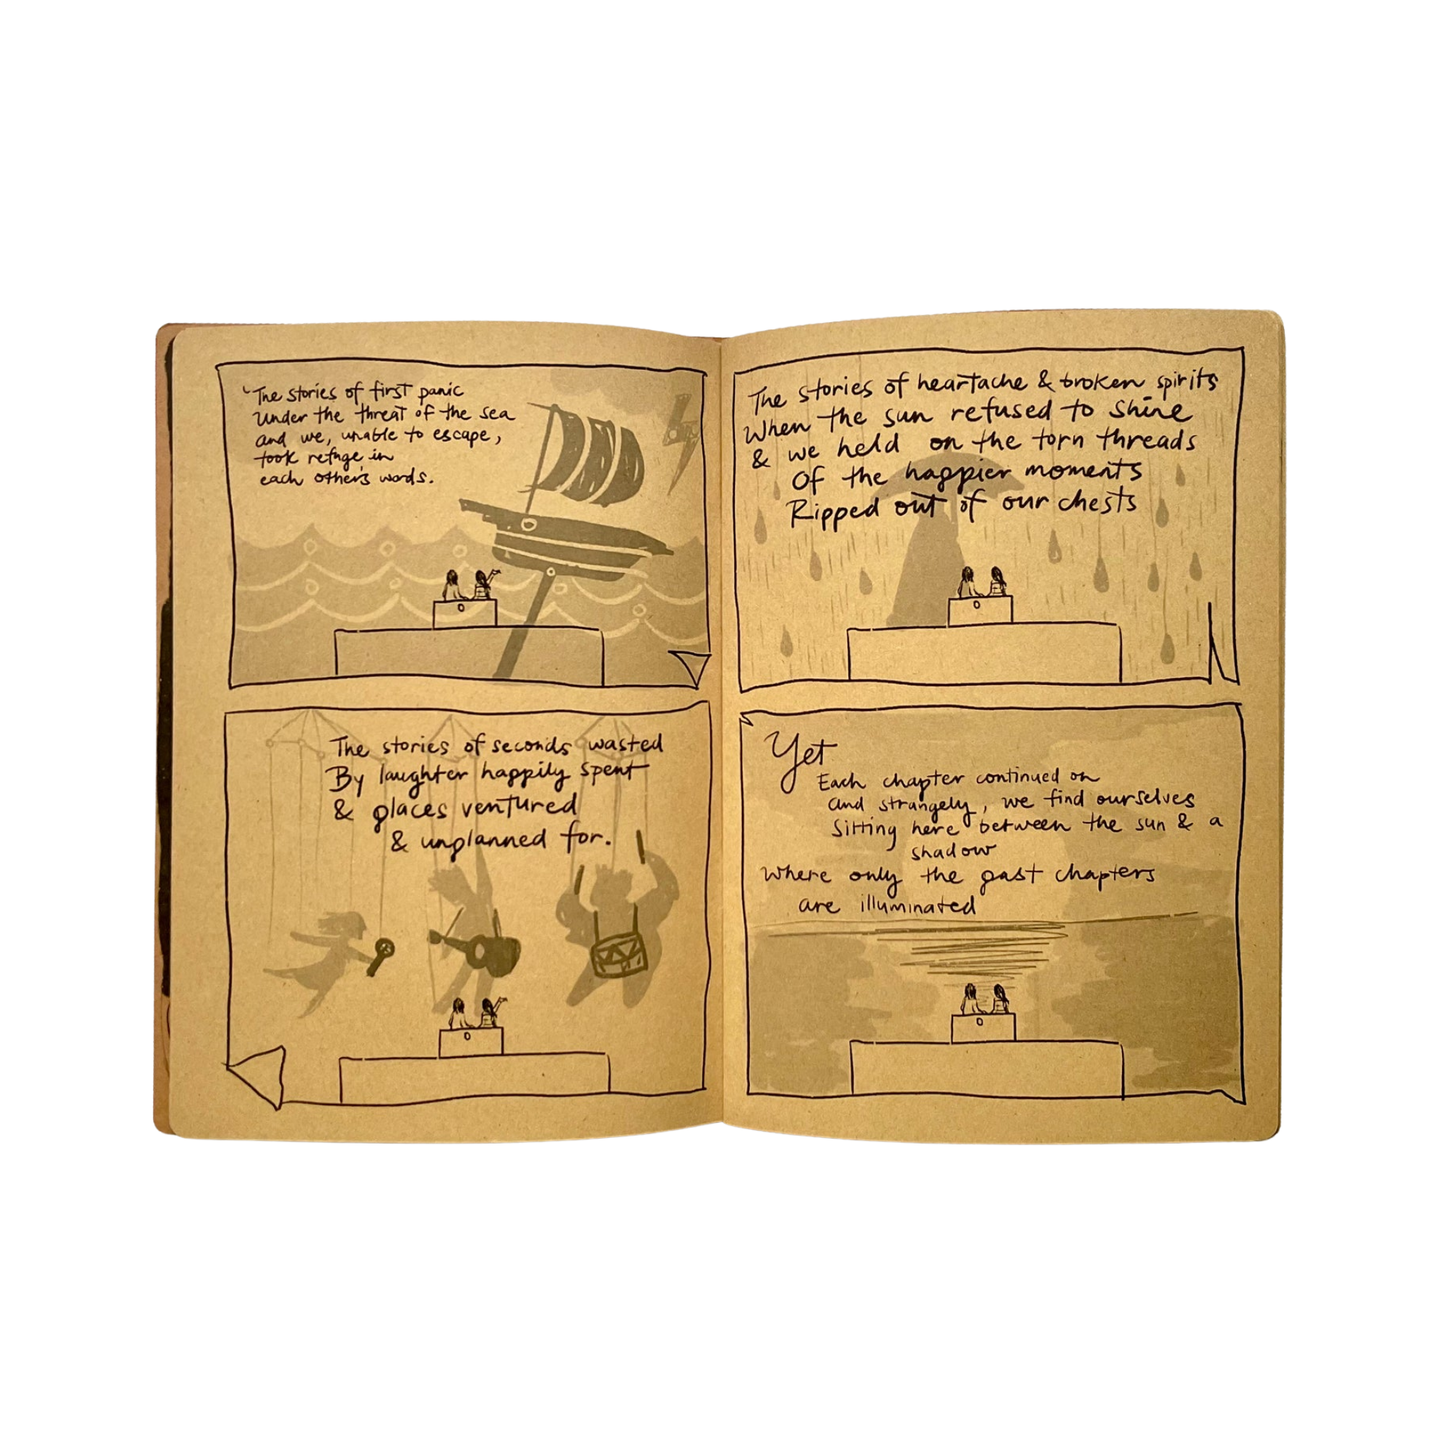 The stories of first panic
Under the threat of the sea
and we, unable to escape,
took refuge in
each other's words.
The stories of seconds wasted
By laughter happily spent
& places ventured
& unplanned for.
The stories of heartache & broken spirits
When the sun refused to shine
& we held on the torn threads
Of the happier moments
Ripped out of our chests
Yet
Each chapter continued on
and strangely, we find ourselves
Sitting here between the sun & a
shadow
where only the past chapters
are illuminated